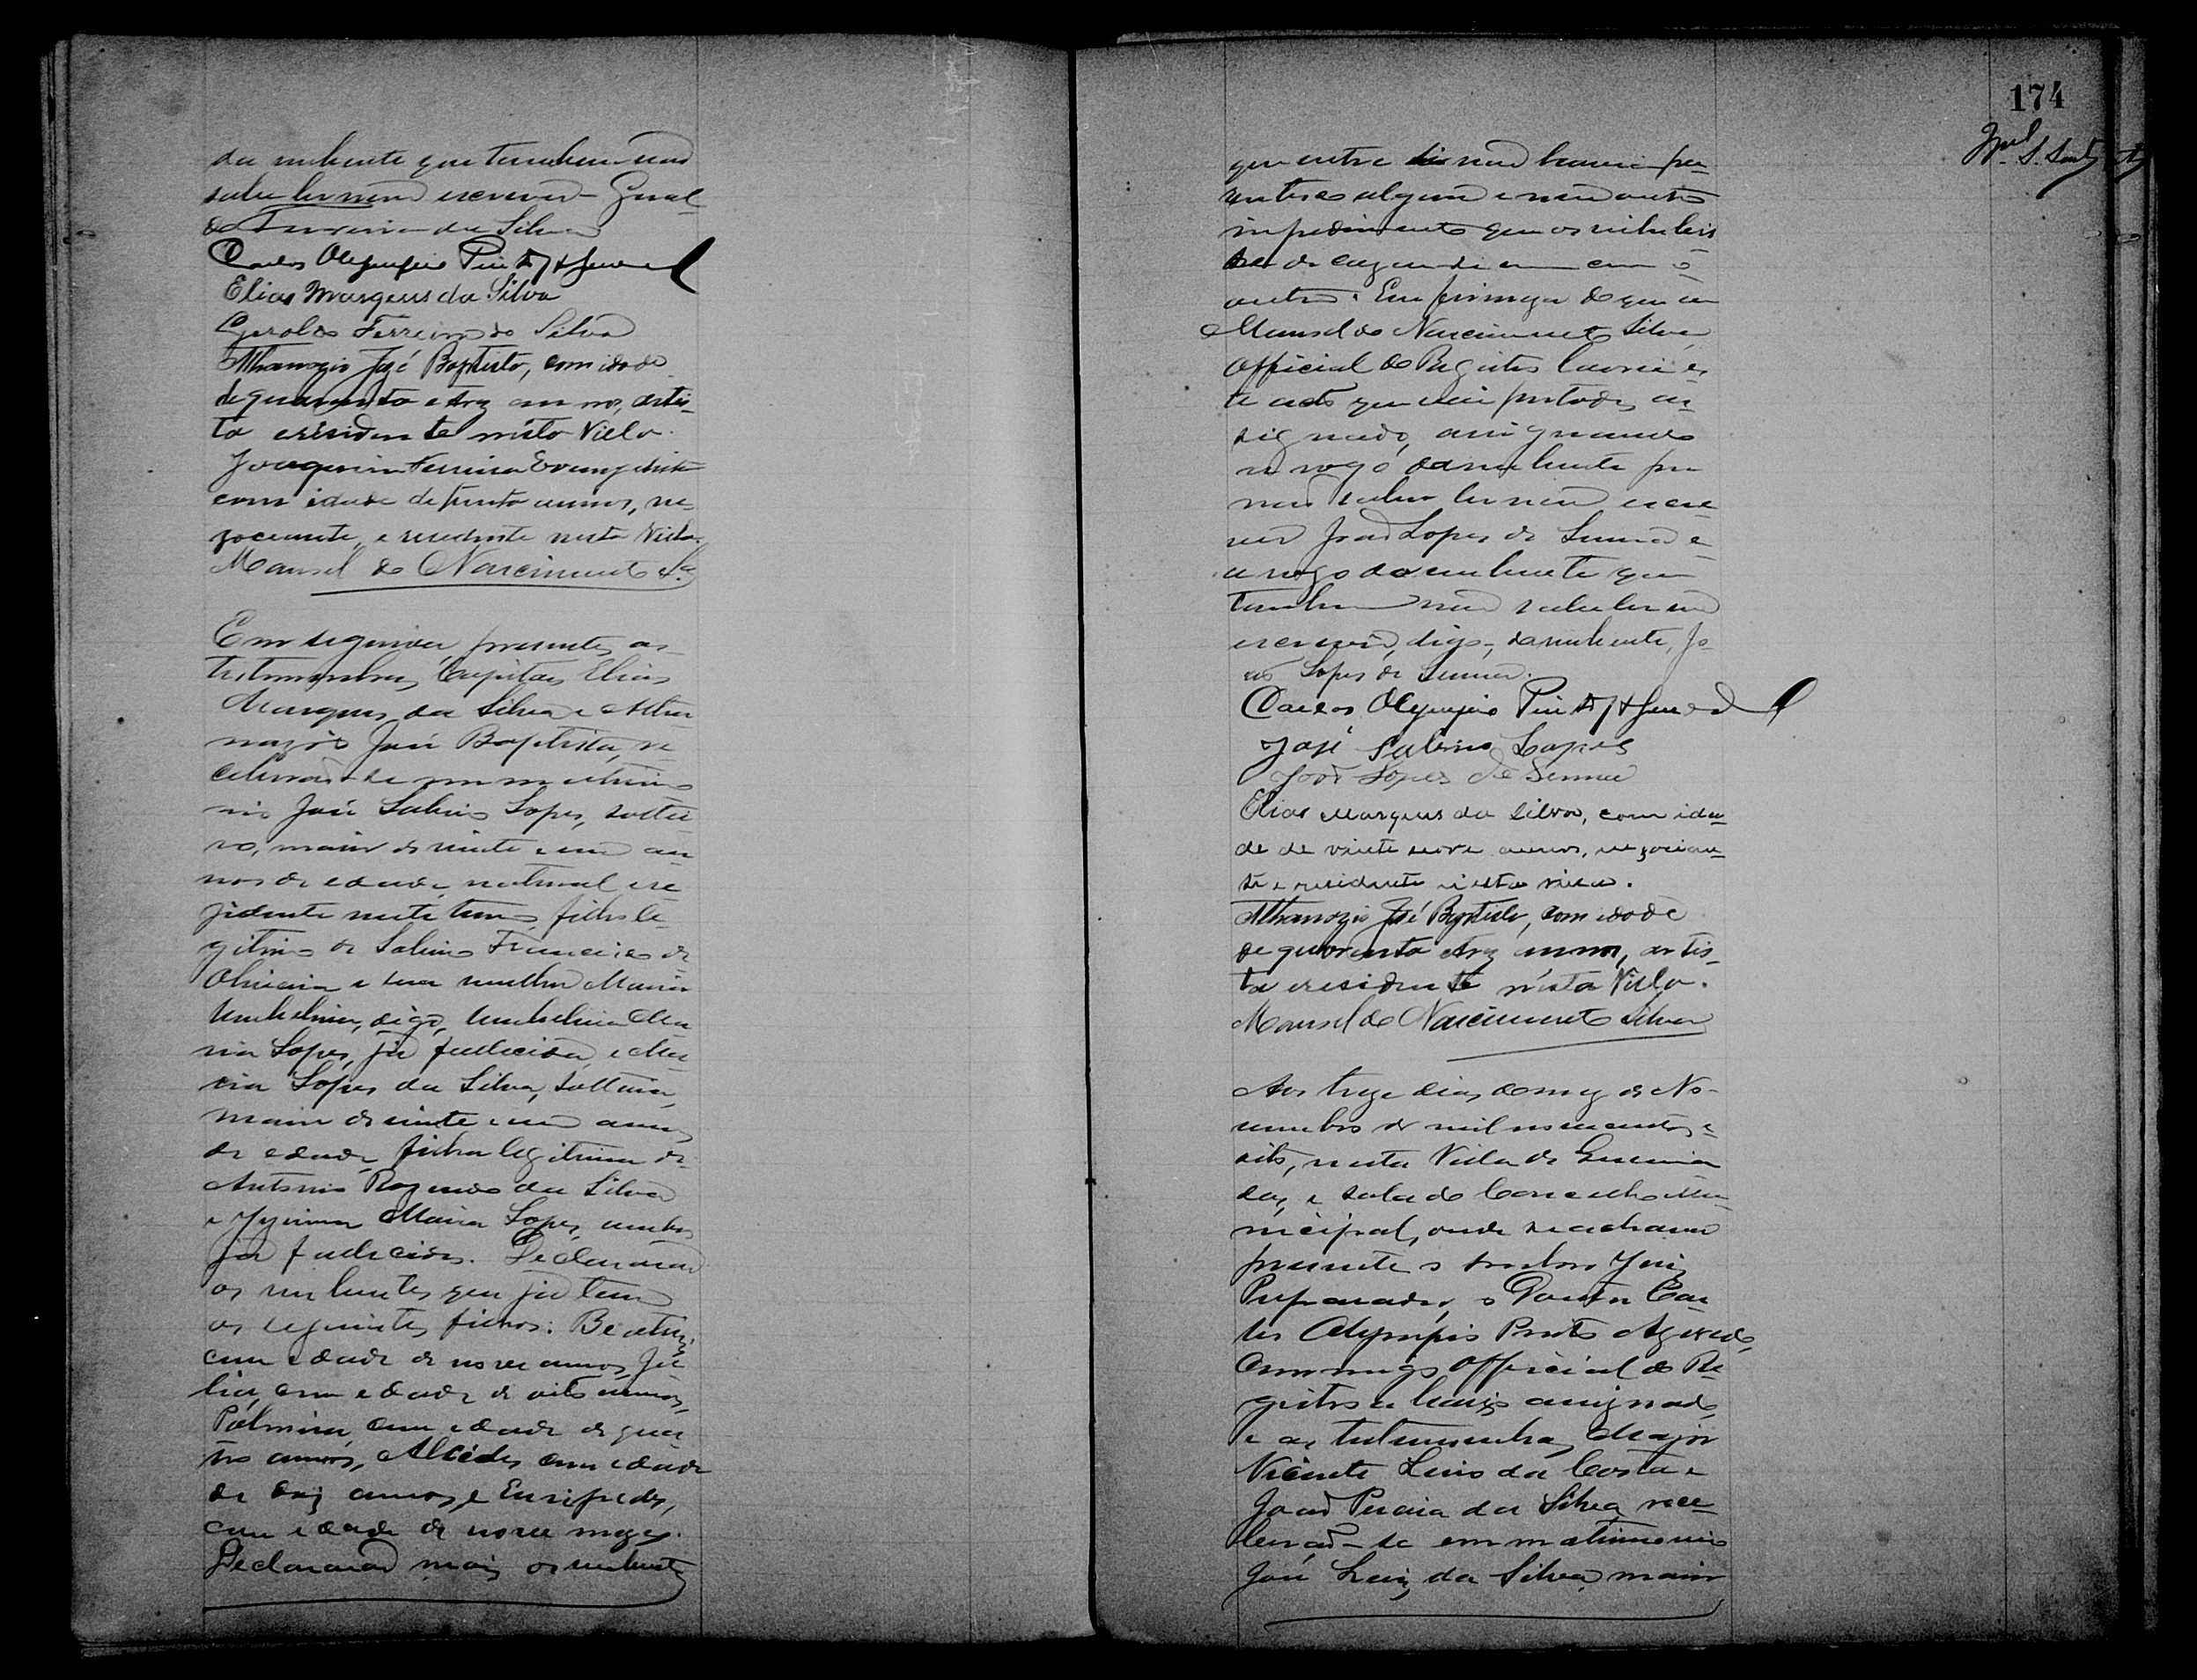 da nubente que tambem não
sabe ler nem escrever Geral-
do Ferreira da Silva
Carlos Olympio Pinto Azevedo
Elias Marques da Silva
Geraldo Ferreira da Silva
Athanazio José Baptista, com idade
de quarenta e trez annos, artis-
ta e residente nésta Villa.
Joaquim Ferreira Evangelista
com idade de trinta annos, ne-
gociante, e residente nesta Villa.
Manoel do Nascimento Sª
Em seguida, presentes as
testemunhas, Capitão Elias
Marques da Silva e Atha
nazio José Baptista, re
ceberão-se em matrimo
nio José Sabino Lopes, soltei
ro, maior de vinte e um an
nos de edade, natural e re
zidente neste termo, filho le-
gitimo de Sabino Francisco de
Oliveira e sua mulher Maria
Umbelina, digo, Umbelina Ma
ria Lopes, já fallecida, e Ma
ria Lopes da Silva, solteira,
maior de vinte e um annos
de edade, filha legitima de
Antonio Rozendo da Silva
e Maria Lopes, ambos
já fallecidos. Declararão
os nubentes que já tem
os seguintes filhos: Beatriz,
com edade de nove annos, Ju
lia, com edade de oito annos,
Palmira, com edade de qua
tro annos, Alcides, com edade
de doiz annos, e Euripedes,
com edade de nove mezes.
Declararão mais os nubentes
174
que entre si não havia pa-
rentesco algum e nem outro
impedimento que os inhibis
se de cazarem-se um com o
outro. Em firmeza de que eu
Manoel do Nascimento Silva,
Official do Registro lavrei es
te acto que vai por todos as
signado, assignando
a rogo da nubente por
não saber ler nem escre
ver João Lopes de Senna e
a rogo da nubente que
tambem não sabe ler nem
escrever, digo, da nubente, Jo
ão Lopes de Senna.
Carlos Olympio Pinto Azevedo
José Sabino Lopes
João Lopes de Senna
Elias Marques da Silva, com ida
de de vinte nove annos, negocian
te e residente nesta villa.
Athanazio José Baptista, com idade
de quarenta e trez annos, artis-
ta e residente nésta Villa.
Manoel do Nascimento Silva
Aos treze dias do mez de No-
vembro de mil novecentos e
oito, nesta Villa de
e sala do Conselho Mu
nicipal, onde se achava
presente o Juiz
Preparador, o Doutor Car
los Olympio Pinto Azevedo,
commigo Official do Re
gistro abaixo assignado,
e as testemunhas, Major
Vicente Luis da Costa e
João Pereira da Silva, rece
berão-se em matrimonio
José Luiz da Silva, maior